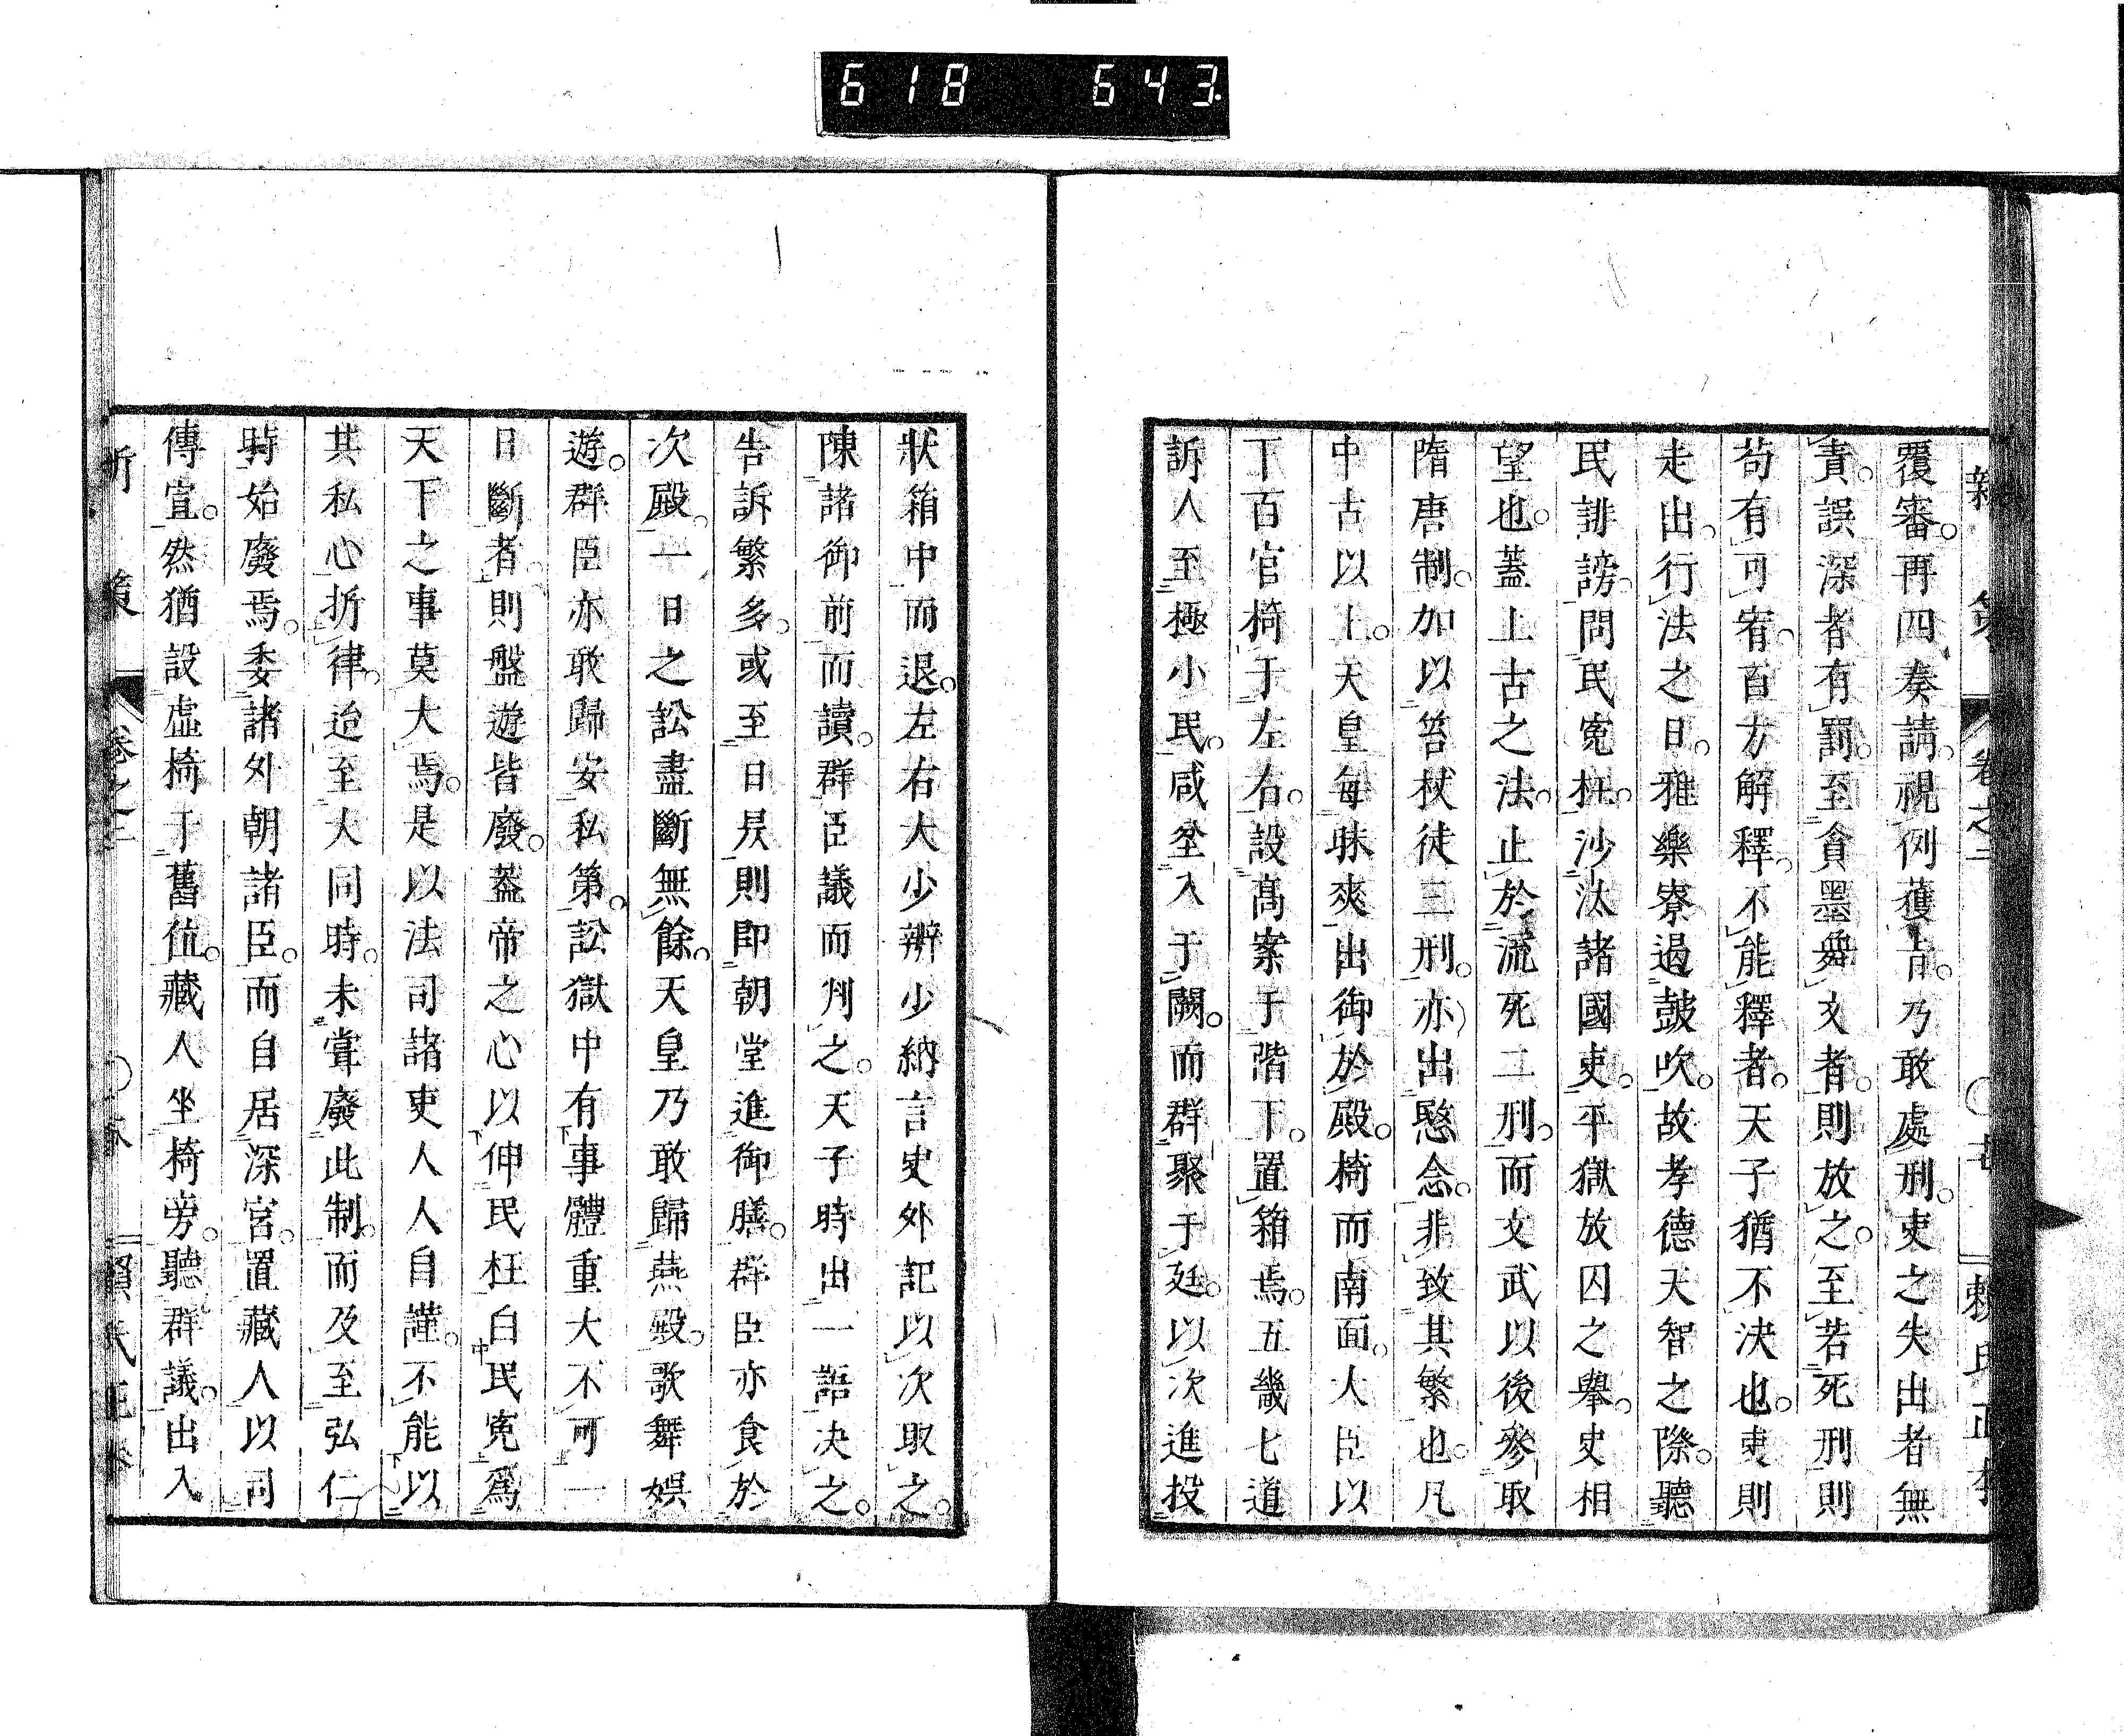 618 643
新策 卷之二 賴氏正本
覆審。再四奏請。視例獲肯。乃敢處刑。吏之失出者無
責。誤深者有罰。至貪墨舞文者。則放之。至若死刑則
苟有可宥。百方解釋。不能釋者。天子猶不決也。吏則
走出。行法之日。雅樂寮遏鼓吹。故孝德天智之際。聽
民誹謗。問民寃枉。沙汰諸國吏。平獄放囚之擧。史相
望也。蓋上古之法。止於流死二刑。而文武以後參取
隋唐制。加以笞杖徒三刑。亦出愍念。非致其繁也。凡
中古以上。天皇每昧爽出御於殿。椅而南面。大臣以
下百官椅于左右。設髙案于階下。置箱焉。五畿七道
訴人至極小民。咸坌入于闕。而群聚于廷。以次進投
狀箱中而退。左右大少辨少納言史外記以次取之。
陳諸御前而讀。群臣議而判之。天子時出一語决之。
告訴繁多。或至日昃則即朝堂進御膳。群臣亦食於
次殿。一日之訟盡斷無餘。天皇乃敢歸燕殿。歌舞娯
遊。群臣亦敢歸安私第。訟獄中有事體重大不可一
日斷者。則盤遊皆廢。蓋帝之心以伸民枉白民寃爲
天下之事莫大焉。是以法司諸吏人人自謹。不能以
其私心折律。迨至大同時。未嘗廢此制。而及至弘仁
時始廢焉。委諸外朝諸臣。而自居深宮。置藏人以司
傳宣。然猶設虛椅于舊位。藏人坐椅旁。聽群議。出入
新策 卷之二 賴氏正本